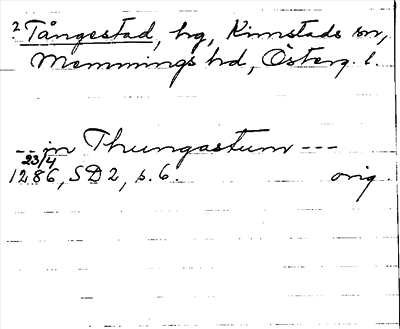 ? Tångestad, hg, Kimstads sn,
Memmings hd, Österg. l.
-- in Thungastum ---
23/4
1286, SD 2, s. 6. orig.